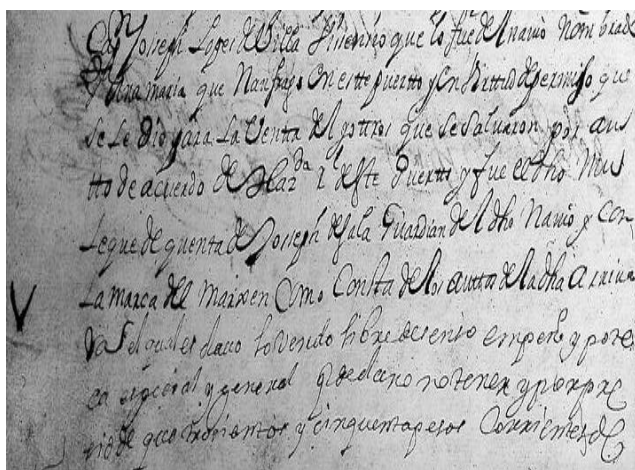 Cap Joseph Lopez de Villa Visencio que lo fue del navio nombrado
Anna maria que Naufrago en este puerto y en birttud de permiso que
se Le dio para La Venta del y ottros que se saluaron por aus
tto de acuerdo de Haz.da R.l deste Puertto y fue el dho Mu
Leque de quenta de Joseph de sala Guardian del dho Nauio y con
La marca del Marxen Como Consta de los auttos de la dha arriua
da el qual esclauo lo vendo libre de senso empeño y pote
ca especial y general q declaro no tener y por pre
cio de quatrocientos y cinquenta pesos Corrientes de